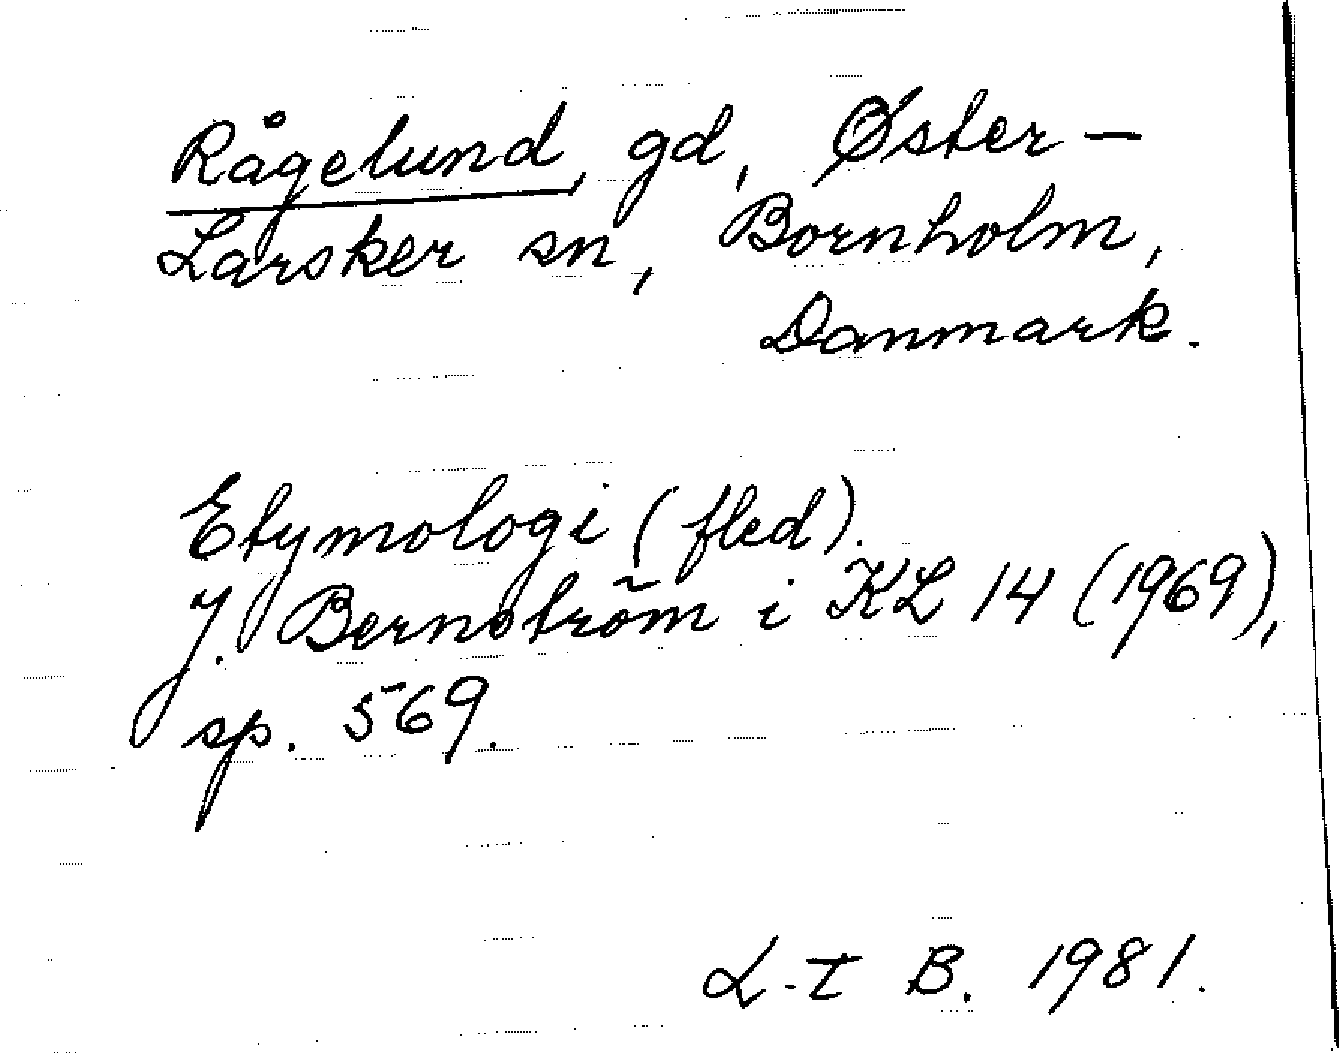 Rågelund, gd, Øster-
Larsker sn, Bornholm,
Danmark.
Etymologi (fled).
J. Bernström i KL 14 (1969),
sp. 569.
L-I B. 1981.